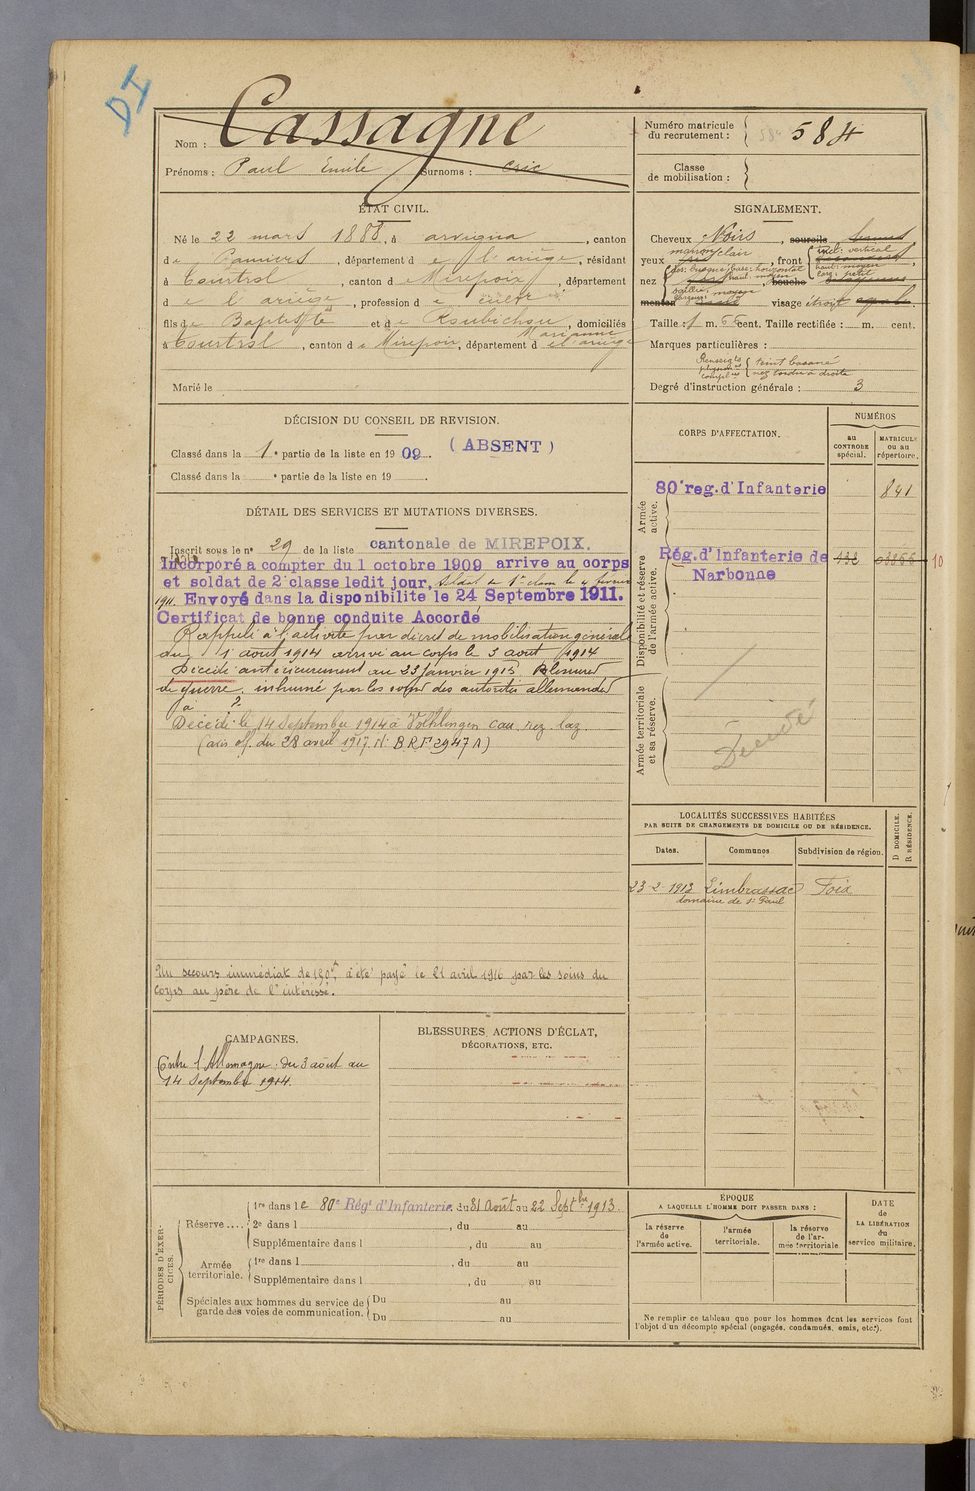 DI
Nom : Cassagne
Prénoms : Paul Emile Surnoms : Cric
Numéro matricule du recrutement : 584
Classe de mobilisation :
ÉTAT CIVIL.
Né le 22 mars 1888, à arvigna, canton
de Pamiers, département de l'ariège, résidant
à Courtrol, canton de Mirepoix, département
de l'ariège, profession de cultr
fils de Baptiste et de Roubichou Marianne, domiciliés
à Courtrol, canton de Mirepoix, département de l'ariège
Marié le
SIGNALEMENT.
Cheveux Noirs, sourcils
yeux marron clair, front incl: vertical haut: moyen larg: petit
nez dos: busqué base: horizontal haut: moyen saillie: moyen, bouche
menton visage étroit ovale
Taille : 1 m. cent. Taille rectifiée : m. cent.
Marques particulières :
Renseigts physiqes complres teint basané
nez tordu à droite
Degré d'instruction générale : 3
DÉCISION DU CONSEIL DE REVISION.
Classé dans la 1e partie de la liste en 1909. (ABSENT)
Classé dans la e partie de la liste en 19
DÉTAIL DES SERVICES ET MUTATIONS DIVERSES.
Inscrit sous le n° 29 de la liste cantonale de MIREPOIX.
Incorporé a compter du 1 octobre 1909 arrive au corps
et soldat de 2e classe ledit jour. Soldat de 1e classe le 4 février
1911. Envoyé dans la disponibilite le 24 Septembre 1911.
Certificat de bonne conduite Accordé
Rappelé à l'activité par décret de mobilisation générale
du 1 août 1914 arrivé au corps le 3 août 1914
Décédé antérieurement au 23 janvier 1915 Blessures
de guerre, inhumé par les soins des autorités allemandes
à ?
Décédé le 14 Septembre 1914 à Volklingen Cau. rez. laz.
(avis off. du 28 avril 1917. N: B.R.F 2947 A)
Un secours immédiat de 150f a été payé le 21 avril 1916 par les soins du
corps au père de l'intéressé.
CORPS D'AFFECTATION.
NUMÉROS
au CONTROLE spécial.
MATRICULE ou au répertoire.
Armée active.
80e reg. d'Infanterie 841
Disponibilité et réserve de l'armée active.
Rég. d'Infanterie de Narbonne 132 10
Armée territoriale et sa réserve.
Décédé
LOCALITÉS SUCCESSIVES HABITÉES
PAR SUITE DE CHANGEMENTS DE DOMICILE OU DE RÉSIDENCE.
Dates. Communes Subdivision de région. D DOMICILE. R RÉSIDENCE.
23-2-1913 Limbrassac Foix
domaine de St Paul
CAMPAGNES.
Contre l'Allemagne. du 3 août au
14 Septembre 1914.
BLESSURES, ACTIONS D'ÉCLAT,
DÉCORATIONS, ETC.
PÉRIODES D'EXERCICES.
Réserve....
1re dans le 80e Régt d'Infanterie du 31 Août au 22 Septbre 1913.
2e dans l , du au
Supplémentaire dans l , du au
Armée territoriale.
1re dans l , du au
Supplémentaire dans l , du au
Spéciales aux hommes du service de garde des voies de communication.
Du au
Du au
ÉPOQUE
A LAQUELLE L'HOMME DOIT PASSER DANS :
la réserve de l'armée active.
l'armée territoriale.
la réserve de l'armée territoriale
DATE de LA LIBÉRATION du service militaire.
Ne remplir ce tableau que pour les hommes dont les services font
l'objet d'un décompte spécial (engagés, condamnés, omis, etc.).